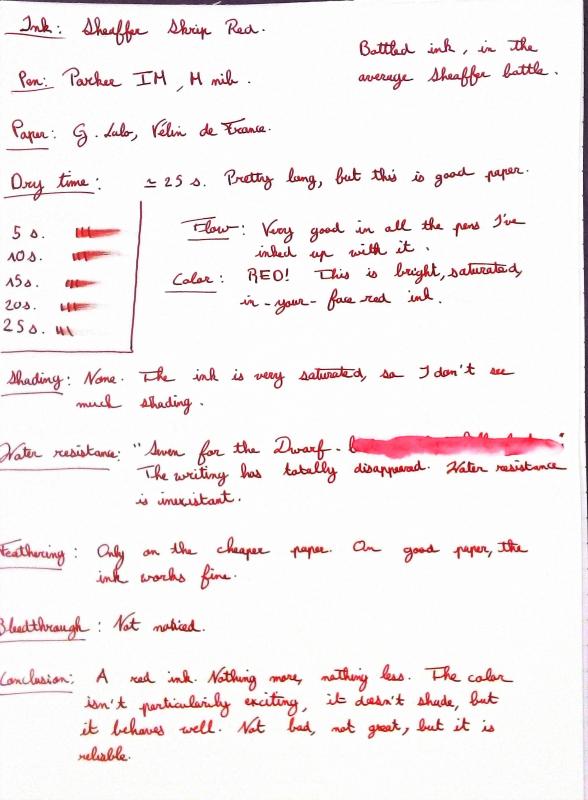 Ink: Sheaffer Skrip Red.
Bottled ink, in the
average Sheaffer bottle.
Pen: Parker IM, M nib.
Paper: G. Lalo, Vélin de France.
Dry time: ≃ 25 s. Pretty long, but this is good paper.
5 s.
10 s.
15 s.
20 s.
25 s.
Flow: Very good in all the pens I've
inked up with it.
Color: RED! This is bright, saturated,
in-your-face red ink.
Shading: None. The ink is very saturated, so I don't see
much shading.
Water resistance: "Seven for the Dwarf-
The writing has totally disappeared. Water resistance
is inexistant.
Feathering: Only on the cheaper paper. On good paper, the
ink works fine.
Bleedthrough: Not noticed.
Conclusion: A red ink. Nothing more, nothing less. The color
isn't particularily exciting, it doesn't shade, but
it behaves well. Not bad, not great, but it is
reliable.